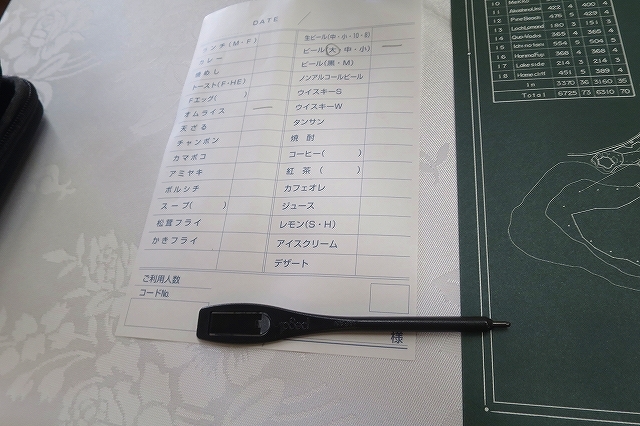 DATE /
ランチ(M・F)
カレー
焼めし
トースト(F・HE)
Fエッグ( )
オムライス
天ざる
チャンポン
カマボコ
アミヤキ
ボルシチ
スープ( )
松茸フライ
かきフライ
生ビール(中・小・10・8)
ビール(大・中・小)
ビール(黒・M)
ノンアルコールビール
ウイスキーS
ウイスキーW
タンサン
焼酎
コーヒー( )
紅茶( )
カフェオレ
ジュース
レモン(S・H)
アイスクリーム
デザート
ご利用人数
コードNo.
様
11 422 4 400 4
12 Pine Beach 476 5 429 5
13 Loch Lomond 180 3 151 3
14 Quo-Vadis 365 4 365 4
15 554 5 504 5
16 368 4 368 4
17 Lake side 214 3 214 3
18 Home cliff 451 5 389 4
In 3370 36 3160 35
Total 6725 73 6310 70